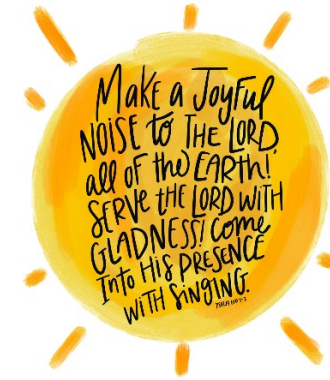 Make a Joyful
NOISE to THE LORD,
all of the EARTH!
SERVE the LORD WITH
GLADNESS! Come
Into His PRESENCE
WITH SINGING.